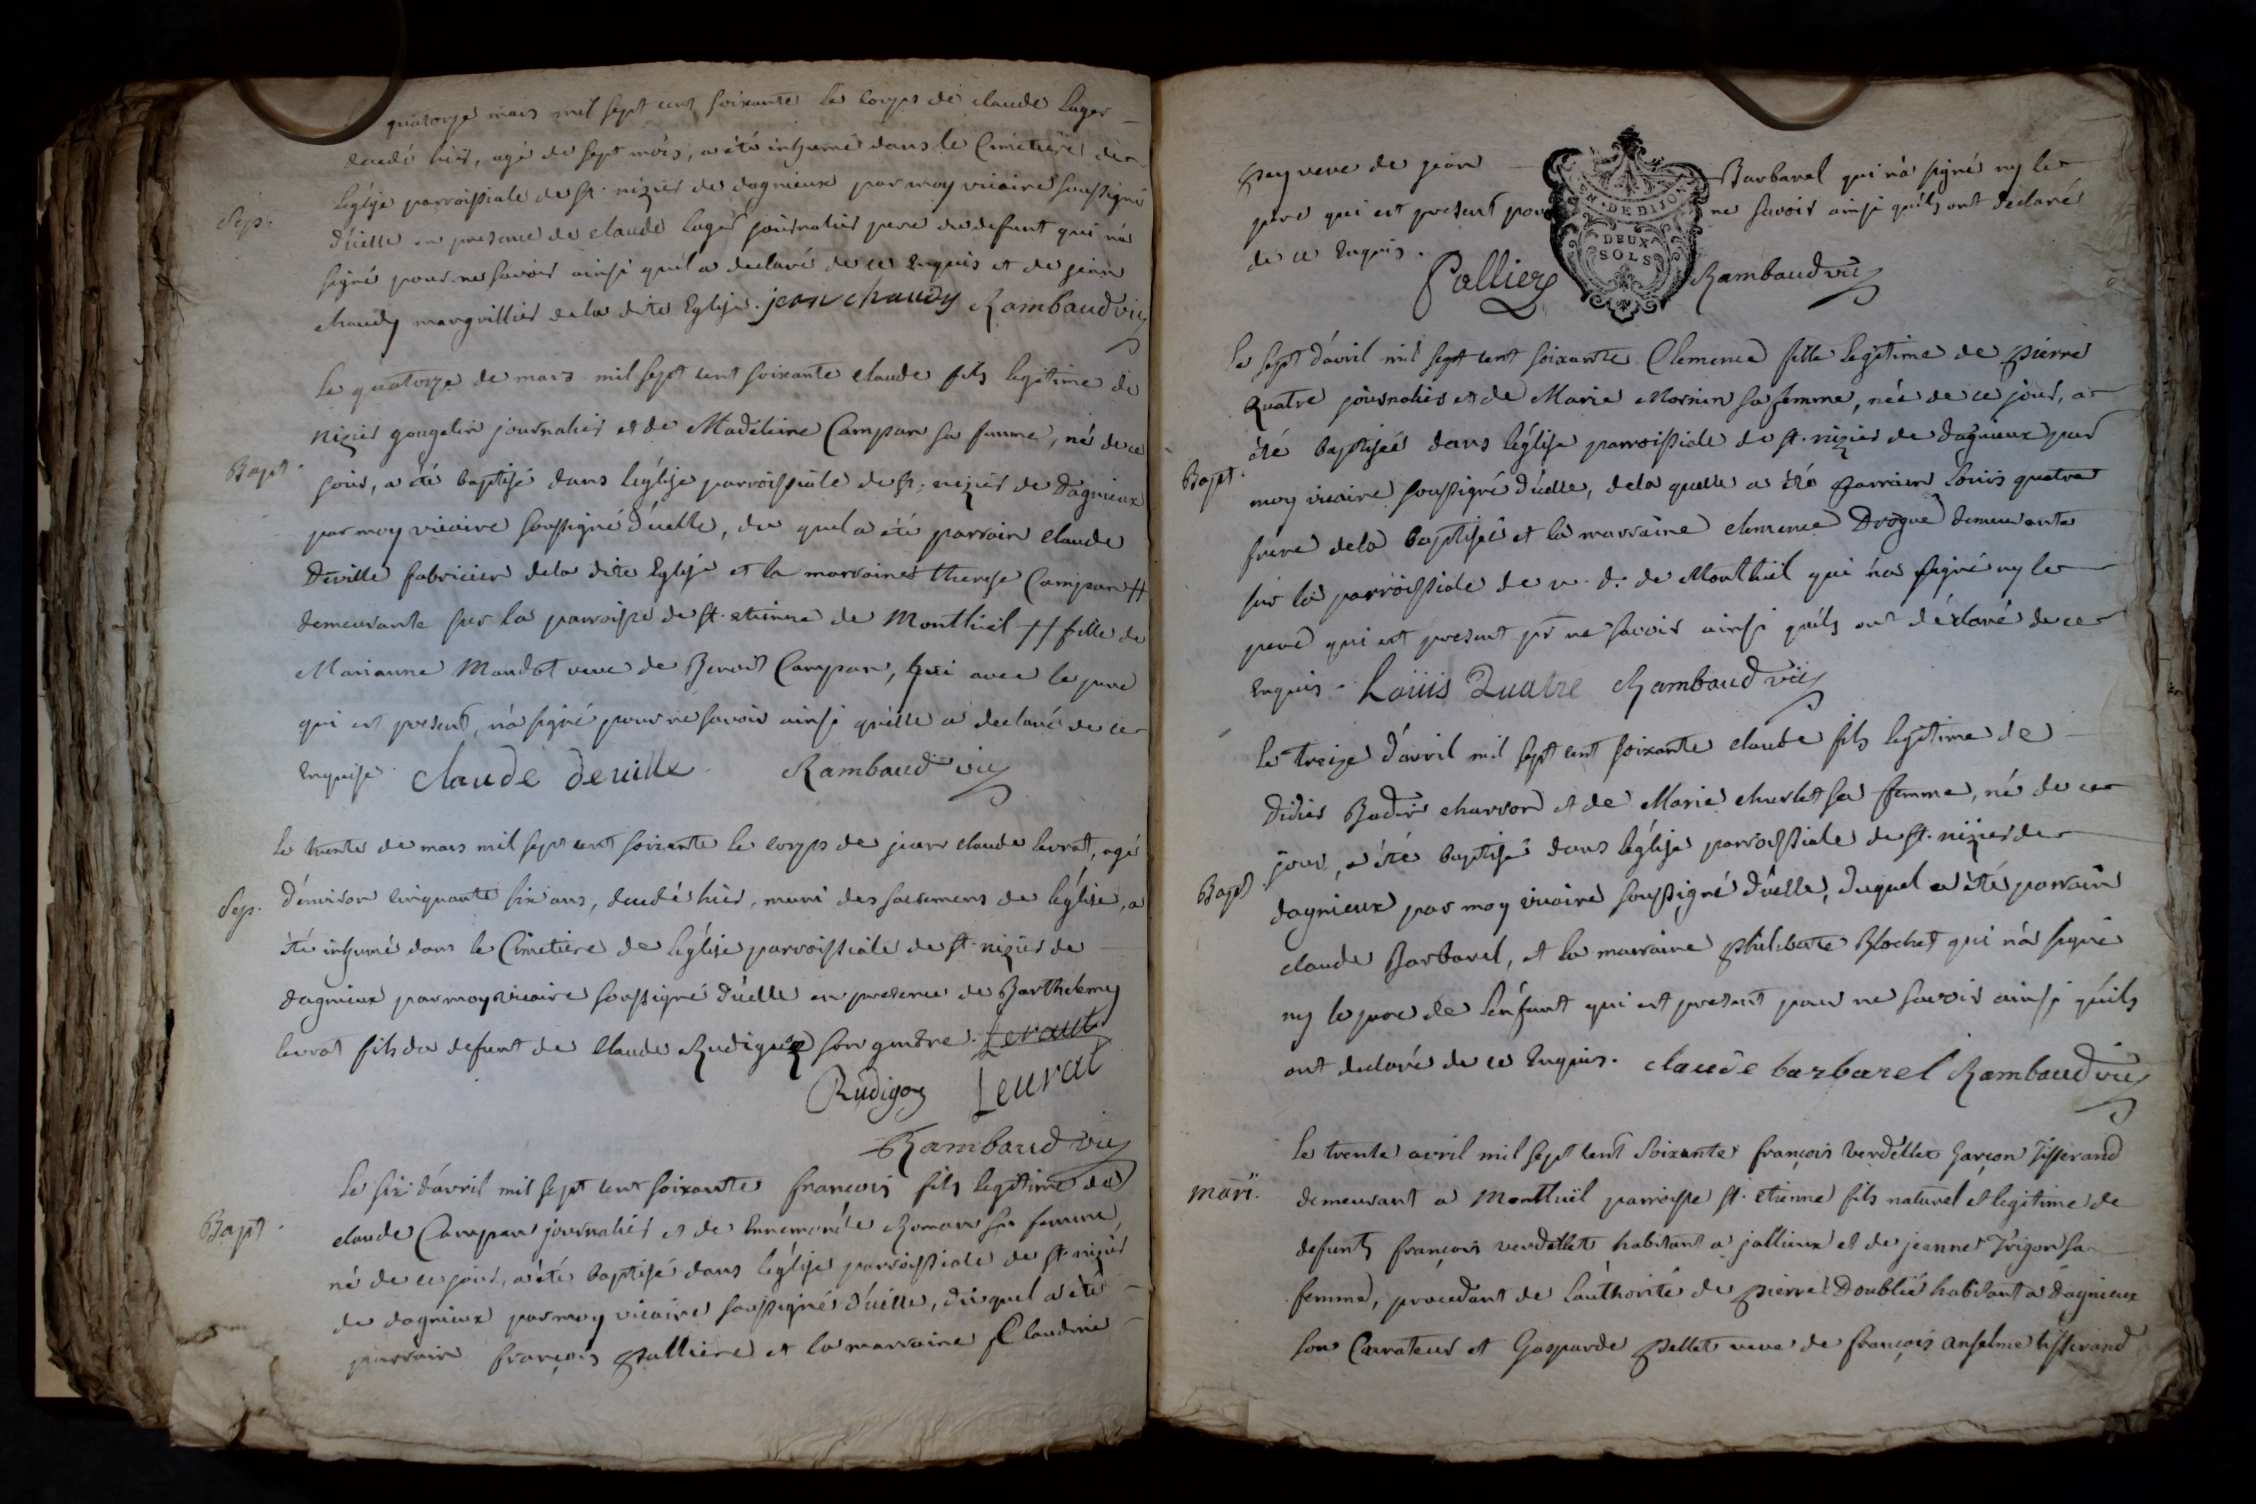 quatorze mars mil sept cent soixante le corps de claude Lager
decedé hier, agé de sept mois, a été inhumé dans le Cimetiere de
Sep.
l'eglise parroissiale de st. nizier de dagnieux par moy vicaire soussigné
d'icelle en presence de claude Lager journalier pere du defunt qui n'a
signé pour ne savoir ainsi qu'il a declaré de ce Enquis et de jean
chaudy marguillier de la dite Eglise. jean chaudy Rambaud vic
Le quatorze de mars mil sept cent soixante claude fils legitime de
nizier gougelin journalier et de Madeleine Campan sa femme, né de ce
Bapt.
jour, a été baptisé dans l'eglise parroissiale de st. nizier de Dagnieux
par moy vicaire soussigné d'icelle, du quel a été parrain claude
Deville fabricien de la dite Eglise et la marraine therese Campan #
demeurante sur la parroisse de st. etienne de Montluël # fille de
Marianne Mandot veuve de Benoit Campan, qui avec le pere
qui est present, n'a signé pour ne savoir ainsi qu'elle a declaré de ce
Enquise. claude deville Rambaud vic
Le trente de mars mil sept cent soixante le corps de jean claude Levrat, agé
Sep.
d'environ cinquante six ans, decedé hier, muni des sacremens de l'église, a
été inhumé dans le Cimetiere de l'église parroissiale de st. nizier de
dagnieux par moy vicaire soussigné d'icelle en presence de Barthelemy
Levrat fils du defunt de Claude Rudigoz son gendre. Levrat
Rudigoz Leurat
Rambaud vic
Le six d'avril mil sept cent soixante françois fils legitime de
Bapt.
claude Campan journalier et de Ennemonde Roman sa femme,
né de ce jour, a été baptisé dans l'église parroissiale de st. nizier
de dagnieux par moy vicaire soussigné d'icelle, du quel a été
parrain françois Palliere et la marraine Claudine
veuve de jean Barbarel qui n'a signé ny le
pere qui est present pour ne savoir ainsi qu'ils ont declaré
de ce Enquis.
N. DE DIJON
DEUX
SOLS
Pallier Rambaud vic
Le sept d'avril mil sept cent soixante Clemence fille legitime de pierre
Quatre journalier et de Marie Mornin sa femme, née de ce jour, a
été baptisée dans l'église parroissiale de st. nizier de dagnieux par
Bapt.
moy vicaire soussigné d'icelle, de la quelle a été parrain Louis quatre
frere de la baptisée et la marraine clemence Drogue demeurante
sur la parroissiale de n. d. de Montluël qui n'a signé ny le
pere qui est present pr ne savoir ainsi qu'ils ont déclaré de ce
Enquis. Loüis Quatre Rambaud vic
Le treize d'avril mil sept cent soixante claude fils legitime de
didier Badin charron et de Marie churlet sa femme, né de ce
jour, a été baptisé dans l'église parroissiale de st. nizier de
Bapt.
dagnieux par moy vicaire soussigné d'icelle, duquel a été parrain
claude Barbarel, et la marraine philiberte Blochet qui n'a signé
ny le pere de l'enfant qui est present pour ne savoir ainsi qu'ils
ont declaré de ce Enquis. claude barbarel Rambaud vic
Le trente avril mil sept cent soixante françois verdellet garçon tisserand
mari.
demeurant a Montluël parroisse st. etienne fils naturel et legitime de
defunts françois verdellet habitant a jallieux et de jeanne Trigon sa
femme, procedant de l'authorité de pierre Doublié habitant a Dagnieux
son Curateur et Gasparde pellet veuve de françois anselme tisserand